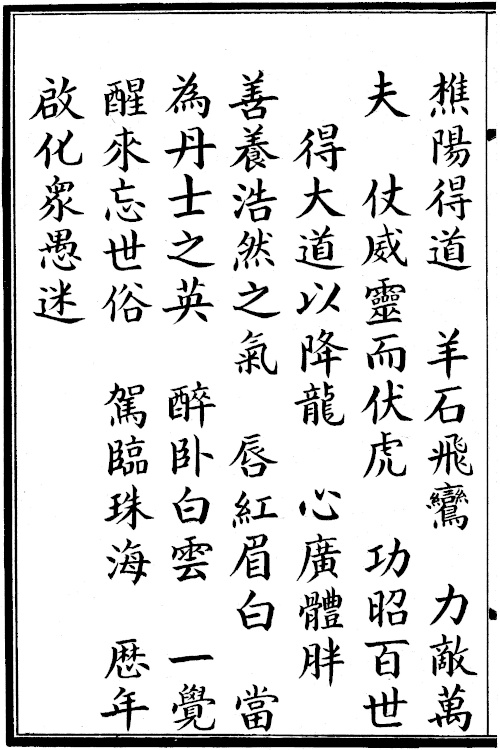 樵陽得道　羊石飛鸞　力敵萬
夫　仗威靈而伏虎　功昭百世
得大道以降龍　心廣體胖
善養浩然之氣　唇紅眉白　當
為丹士之英　醉卧白雲　一覺
醒來忘世俗　駕臨珠海　歷年
啟化眾愚迷